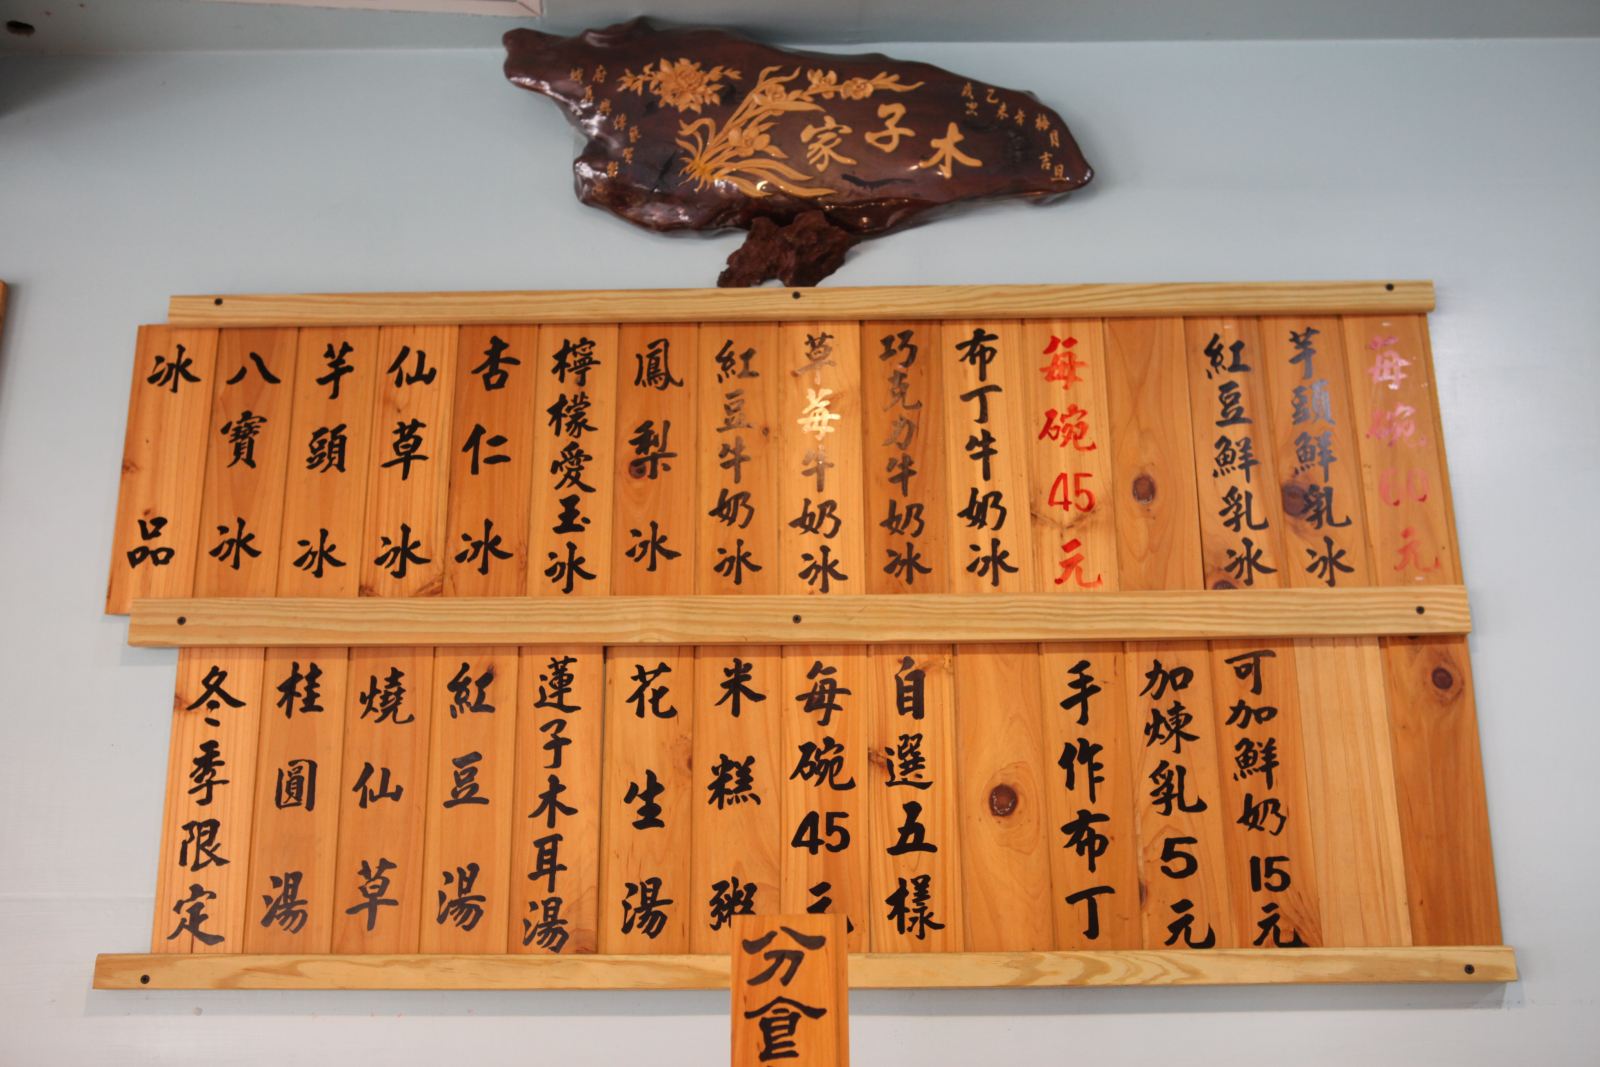 木子家
乙未年梅月吉旦
冰品
八寶冰
芋頭冰
仙草冰
杏仁冰
檸檬愛玉冰
鳳梨冰
紅豆牛奶冰
草莓牛奶冰
巧克力牛奶冰
布丁牛奶冰
每碗45元
紅豆鮮乳冰
芋頭鮮乳冰
每碗60元
冬季限定
桂圓湯
燒仙草
紅豆湯
蓮子木耳湯
花生湯
米糕粥
每碗45元
自選五樣
手作布丁
加煉乳5元
可加鮮奶15元
分食